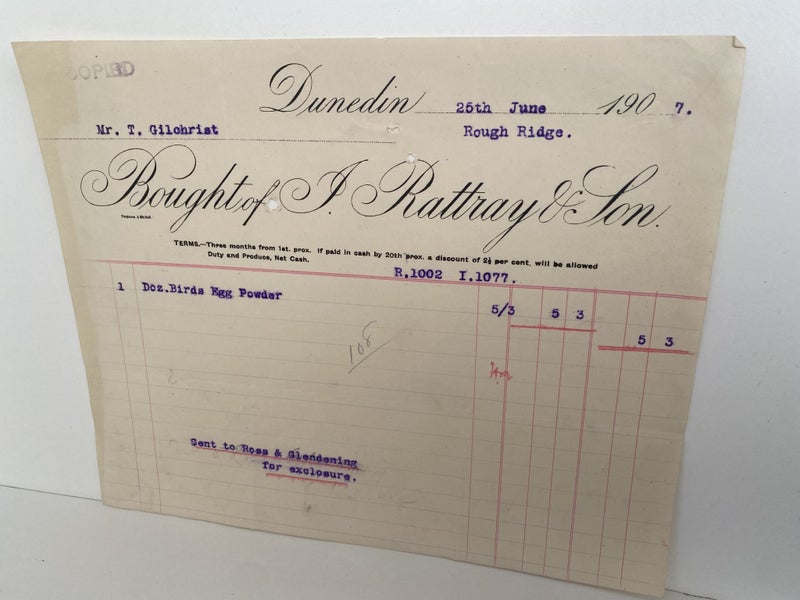 COPIED
Dunedin 25th June 1907.
Mr. T. Gilchrist
Rough Ridge.
Bought of J. Rattray & Son.
TERMS.—Three months from 1st. prox. If paid in cash by 20th prox. a discount of 2½ per cent. will be allowed
Duty and Produce, Net Cash.
R.1002 I.1077.
1 Doz.Birds Egg Powder 5/3 5 3 5 3
108
Sent to Ross & Glendening
for exclosure.